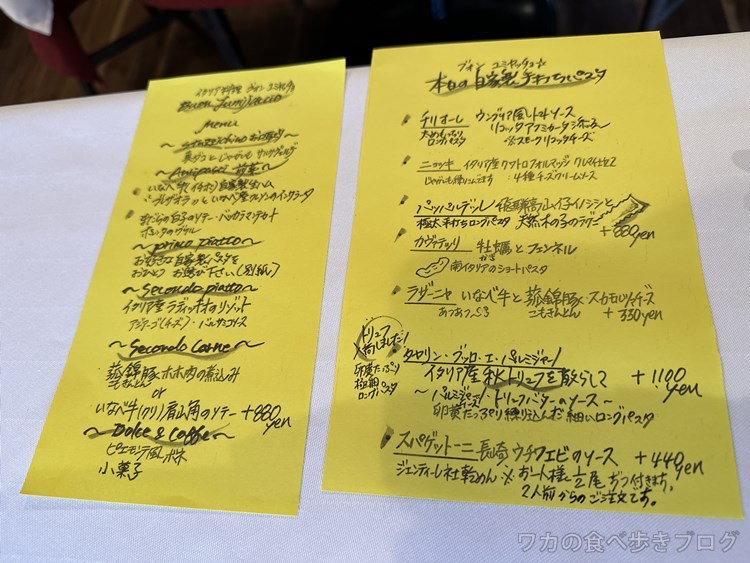 イタリア料理 ブオン ユミヤッチョ
Menu
いなべ牛(イチボ)自家製生ハム
ポレンタのグリル
~primo piatto~
お好きな自家製パスタを
おひとつ お選び下さい(別紙)
~Secondo piatto~
イタリア産 ラディッキオのリゾット
アジアーゴ(チーズ)・バルサミコソース
~Secondo Carne~
菰錦豚ホホ肉の煮込み
こもきんとん
or
いなべ牛(クリ)肩山角のソテー +880yen
~Dolce & Coffe~
ピエモンテ風
小菓子
ブオン ユミヤッチョ
本日の自家製手打ちパスタ
チリオーレ ウングリア風トマトソース
太めもっちりロングパスタ
リコッタアフミカータ添え
※スモークリコッタチーズ
ニョッキ イタリア産クワトロフォルマッジ クレマ仕立
じゃがいも練りこんでます :4種チーズクリームソース
パッパルデッレ
極太手打ちロングパスタ 天然木の子のラグー +880yen
カヴァテッリ 牡蠣とフェンネル
かき
南イタリアのショートパスタ
ラザーニャ いなべ牛と菰錦豚・スカモルツァチーズ
あつあつ こもきんとん +330yen
トリュフ
入荷しました!
卵黄たっぷり
極細
ロングパスタ
タヤリン・ブッロ・エ・パルミジャーノ
イタリア産秋トリュフを散らして +1100yen
~パルミジャーノ・トリュフバターのソース~
チーズ
卵黄たっぷり練り込んだ細いロングパスタ
スパゲットーニ 長崎ウチワエビのソース +440yen
ジェンティーレ社乾めん ※お一人様に1/2尾ずつ付きます。
2人前からのご注文です。
ワカの食べ歩きブログ